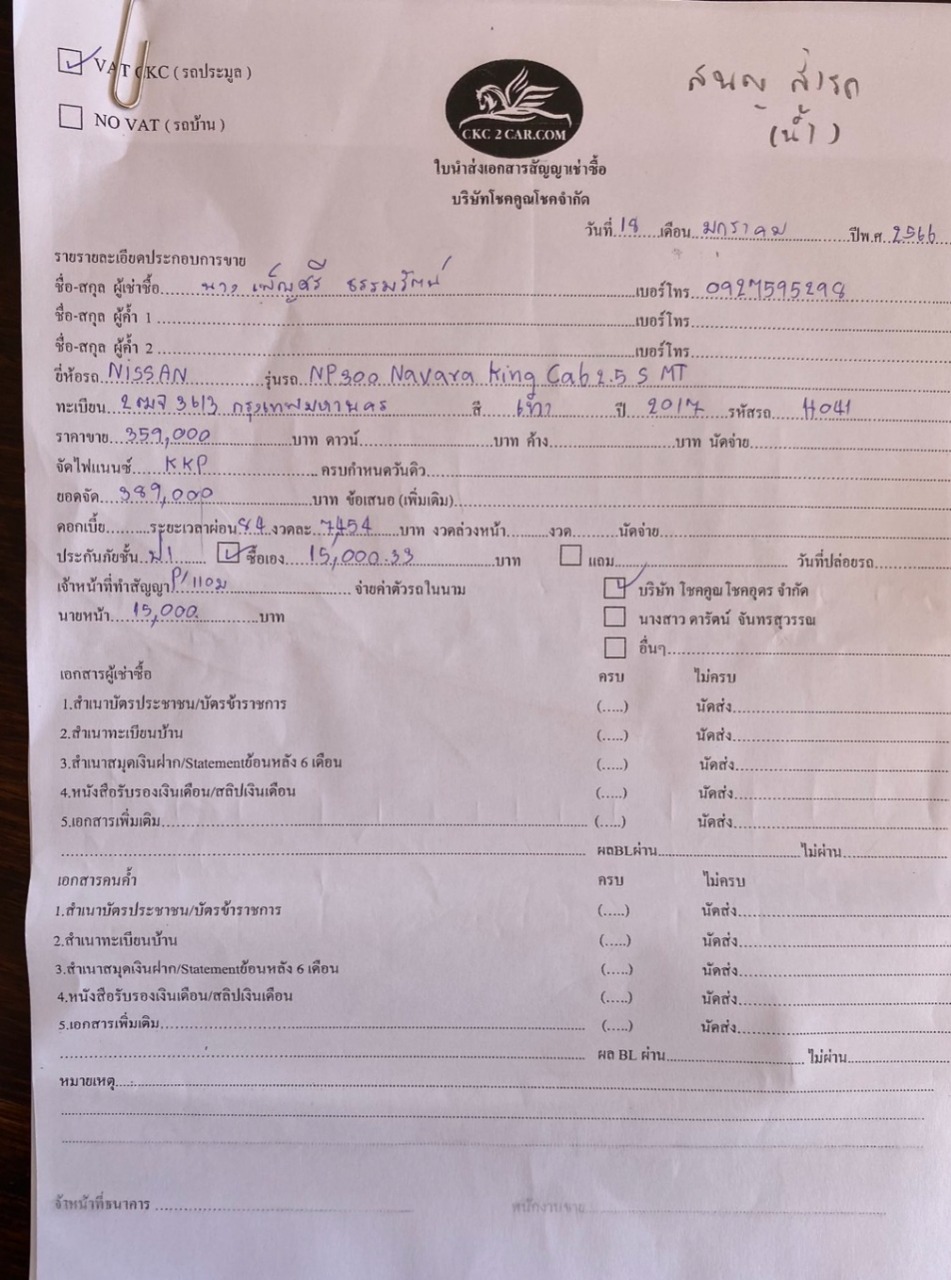 ☑ VAT CKC ( รถประมูล )
☐ NO VAT ( รถบ้าน )
CKC 2 CAR.COM
ส่งรถ
(น้ำ)
ใบนำส่งเอกสารสัญญาเช่าซื้อ
บริษัทโชคคูณโชคจำกัด
วันที่ 18 เดือน มกราคม ปีพ.ศ. 2566
รายรายละเอียดประกอบการขาย
ชื่อ-สกุล ผู้เช่าซื้อ นาง เพ็ญศรี ธรรมรัตน์ เบอร์โทร 0927595298
ชื่อ-สกุล ผู้ค้ำ 1 เบอร์โทร
ชื่อ-สกุล ผู้ค้ำ 2 เบอร์โทร
ยี่ห้อรถ NISSAN รุ่นรถ NP300 Navara King Cab 2.5 S MT
ทะเบียน 2ฒจ 3613 กรุงเทพมหานคร สี เทา ปี 2017 รหัสรถ H041
ราคาขาย 359,000 บาท ดาวน์ บาท ค้าง บาท นัดจ่าย
จัดไฟแนนซ์ KKP ครบกำหนดวันคิว
ยอดจัด 389,000 บาท ข้อเสนอ (เพิ่มเติม)
ดอกเบี้ย ระยะเวลาผ่อน 84 งวดละ 7,454 บาท งวดล่วงหน้า งวด นัดจ่าย
ประกันภัยชั้น ป1 ☑ ซื้อเอง 15,000.33 บาท ☐ แถม วันที่ปล่อยรถ
เจ้าหน้าที่ทำสัญญา P/แอม จ่ายค่าตัวรถในนาม ☑ บริษัท โชคคูณ โชคอุดร จำกัด
นายหน้า 15,000 บาท ☐ นางสาว ดารัตน์ จันทรสุวรรณ
☐ อื่นๆ
เอกสารผู้เช่าซื้อ ครบ ไม่ครบ
1.สำเนาบัตรประชาชน/บัตรข้าราชการ (.....) นัดส่ง
2.สำเนาทะเบียนบ้าน (.....) นัดส่ง
3.สำเนาสมุดเงินฝาก/Statementย้อนหลัง 6 เดือน (.....) นัดส่ง
4.หนังสือรับรองเงินเดือน/สลิปเงินเดือน (.....) นัดส่ง
5.เอกสารเพิ่มเติม (.....) นัดส่ง
ผลBLผ่าน ไม่ผ่าน
เอกสารคนค้ำ ครบ ไม่ครบ
1.สำเนาบัตรประชาชน/บัตรข้าราชการ (.....) นัดส่ง
2.สำเนาทะเบียนบ้าน (.....) นัดส่ง
3.สำเนาสมุดเงินฝาก/Statementย้อนหลัง 6 เดือน (.....) นัดส่ง
4.หนังสือรับรองเงินเดือน/สลิปเงินเดือน (.....) นัดส่ง
5.เอกสารเพิ่มเติม (.....) นัดส่ง
ผล BL ผ่าน ไม่ผ่าน
หมายเหตุ
จ้าหน้าที่ธนาคาร พนักงานขาย